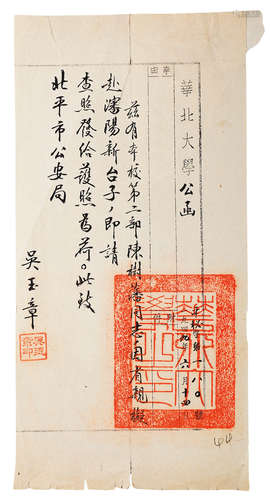 華北大學公函
事由
茲有本校第二部陳樹藩同志因省親擬
赴瀋陽新台子,即請
查照發給護照為荷。此致
北平市公安局
吳玉章
一八〇號
年六月十四日